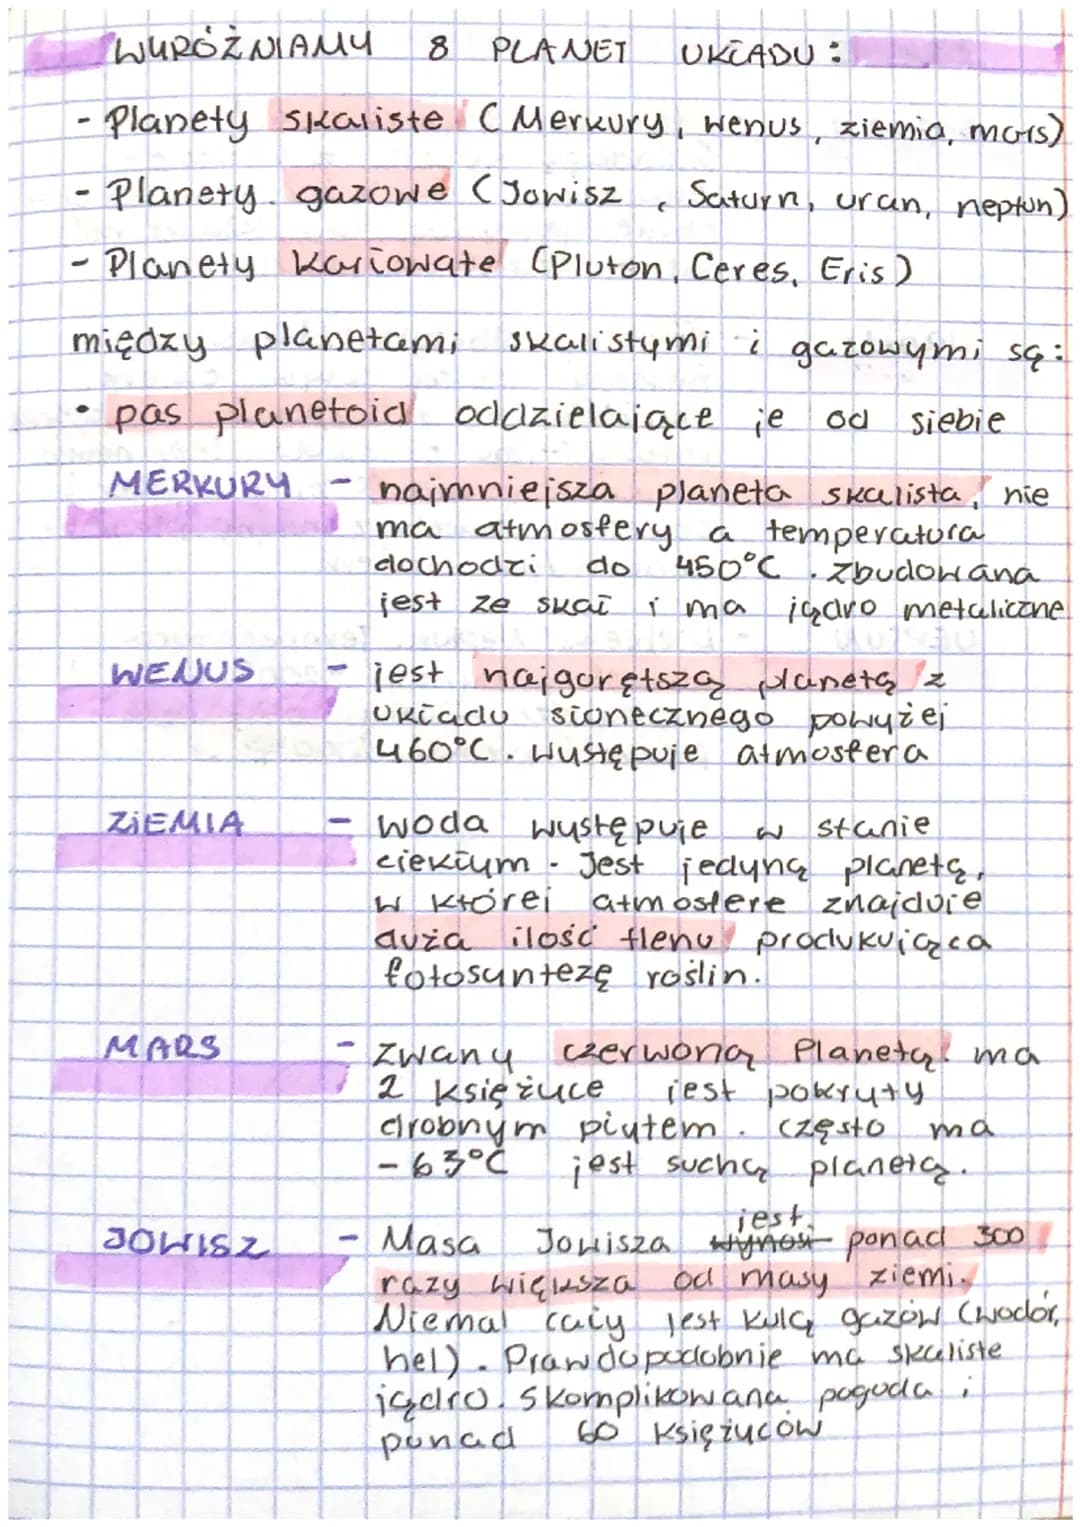 WYRÓŻNIAMY 8 PLANET UKŁADU:
- Planety skaliste (Merkury, wenus, ziemia, mars)
- Planety gazowe (Jowisz, Saturn, uran, neptun)
- Planety karłowate (Pluton, Ceres, Eris)
między planetami skalistymi i gazowymi są:
• pas planetoid oddzielające je od siebie
MERKURY - najmniejsza planeta skalista, nie
ma atmosfery a temperatura
dochodzi do 450°C. zbudowana
jest ze skał i ma jądro metaliczne
WENUS - jest najgorętszą planetą z
układu słonecznego powyżej
460°C. występuje atmosfera
ZIEMIA - woda występuje w stanie
ciekłym. Jest jedyną planetą,
w której atmosfere znajduje
duża ilość tlenu produkująca
fotosyntezę roślin.
MARS - zwany czerwoną Planetą. ma
2 księżyce jest pokryty
drobnym pyłtem. często ma
- 63°C jest suchą planetą.
JOWISZ - Masa Jowisza wynosi jest ponad 300
razy większa od masy ziemi.
Niemal cały jest kulą gazów (wodór,
hel). Prawdopodobnie ma skaliste
jądro. Skomplikowana pogoda i
ponad 60 księżyców